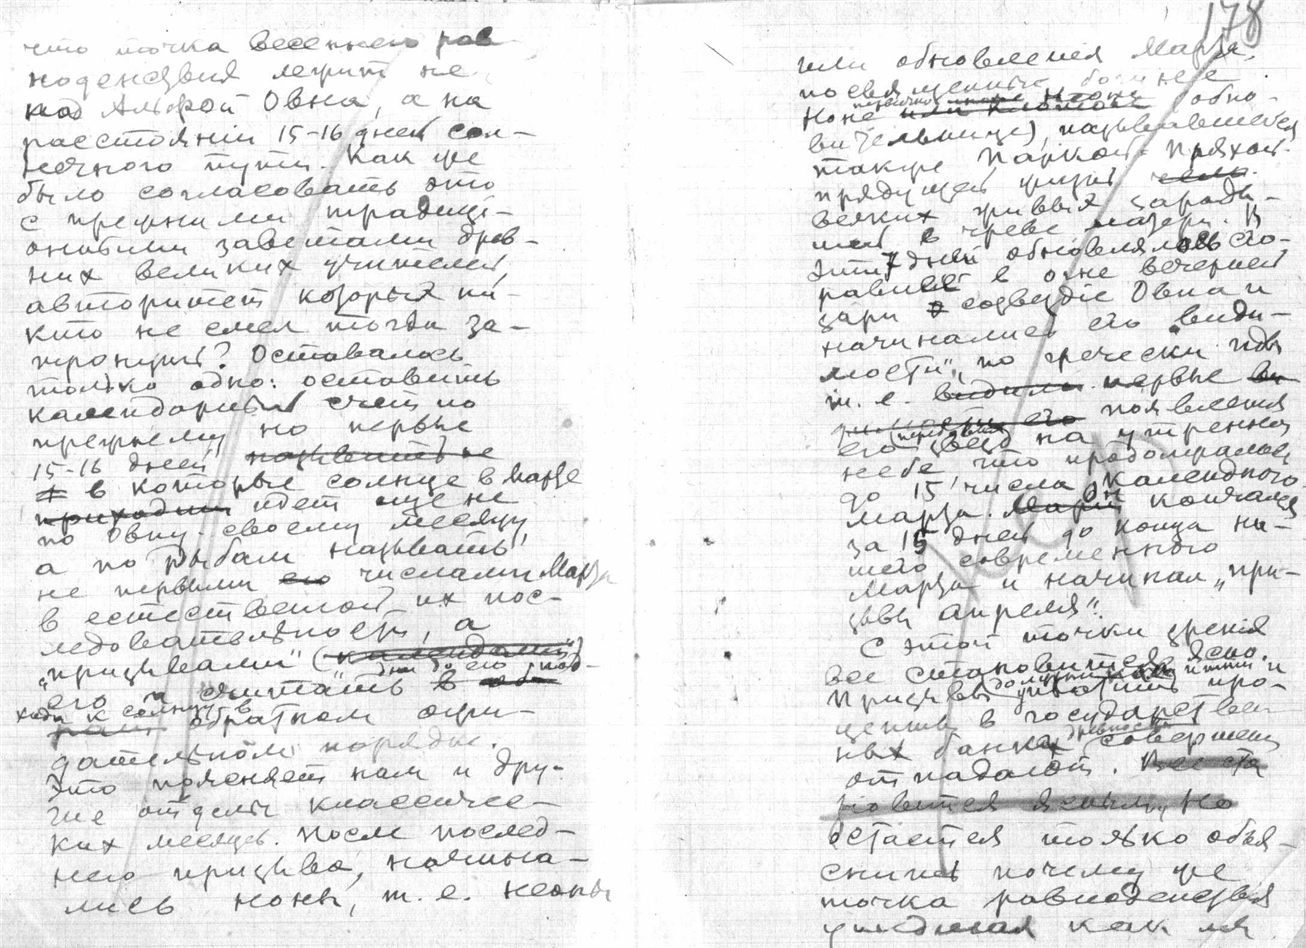 что точка весеннего рав
ноденствия лежит не
над Альфой Овна, а на
расстоянии 15-16 дней сол-
нечного пути. Как же
было согласовать это
с прежними традици-
онными заветами древ-
них великих учителей,
авторитет которых ни-
кто не смел тогда за-
тронуть? Оставалось
только одно: оставить
календарный счет по
прежнему но первые
15-16 дней называть не
в которые солнце в Марте
приходит идет еще не
по Овну своему месяцу,
а по Рыбам называть
не первыми его числами Марта
в естественной их пос-
ледовательности, а
"призывами" (календами)
дни до его под-
его и считать в
хода к солнцу в
обратном отри-
цательном порядке.
Это поясняет нам и дру-
гие отделы классичес-
ких месяцев. После послед-
него призыва, начина-
лись ноны, т. е. неоны
178
или обновления Марта,
посвященный богине
Ноне обно-
вительнице), называвшейся
также Паркой - Пряхой
прядущей жизнь
всяких живых зароды-
шей в чреве матери. В
эти 7 дней обновлялось сго-
равшее в огне вечерней
зари созвездие Овна и
начинались его "види-
мости", по гречески иды
т. е. видили первые
появления
его звезд на утреннем
небе что продолжалось
до 15 числа календного
Марта. Март он кончался
за 15 дней до конца на-
шего современного
Марта и начинал "при-
зывы апреля".
С этой точки зрения
все становится ясно.
Призывы
платить про-
центы в государствен
ных банках древности совершенно
отпадают. Все ста
новится ясным, но
остается только объя-
снить почему же
точка равноденствия